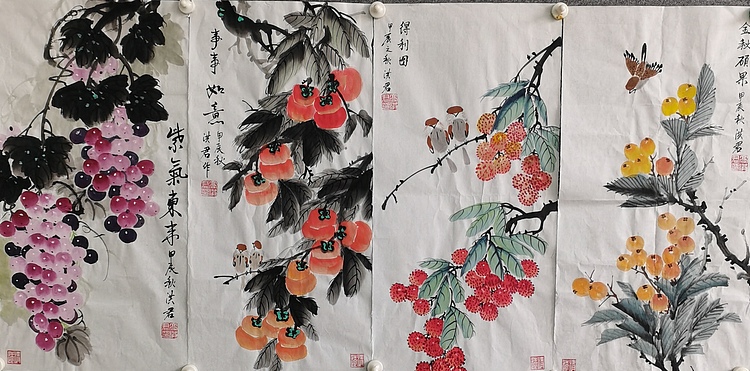 紫氣東来
甲辰秋洪君
事事如意
甲辰秋
洪君作
得利图
甲辰之秋洪君
金秋硕果
甲辰秋洪君